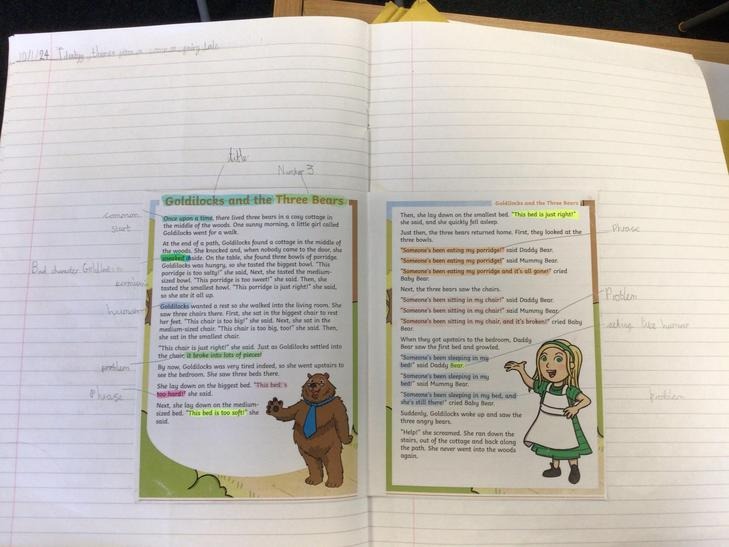 10/1/24 themes fairy tale
title
Number 3
common
start
Bad character Goldilocks
human
problem
Phrase
Goldilocks and the Three Bears
Once upon a time, there lived three bears in a cosy cottage in
the middle of the woods. One sunny morning, a little girl called
Goldilocks went for a walk.
At the end of a path, Goldilocks found a cottage in the middle of
the woods. She knocked and, when nobody came to the door, she
sneaked inside. On the table, she found three bowls of porridge.
Goldilocks was hungry, so she tasted the biggest bowl. "This
porridge is too salty!" she said, Next, she tasted the medium-
sized bowl. "This porridge is too sweet!" she said. Then, she
tasted the smallest bowl. "This porridge is just right!" she said,
so she ate it all up.
Goldilocks wanted a rest so she walked into the living room. She
saw three chairs there. First, she sat in the biggest chair to rest
her feet. "This chair is too big!" she said. Next, she sat in the
medium-sized chair. "This chair is too big, too!" she said. Then,
she sat in the smallest chair.
"This chair is just right!" she said. Just as Goldilocks settled into
the chair, it broke into lots of pieces!
By now, Goldilocks was very tired indeed, so she went upstairs to
see the bedroom. She saw three beds there.
She lay down on the biggest bed. "This bed is
too hard!" she said.
Next, she lay down on the medium-
sized bed. "This bed is too soft!" she
said.
Goldilocks and the Three Bears
Then, she lay down on the smallest bed. "This bed is just right!"
she said, and she quickly fell asleep.
Just then, the three bears returned home. First, they looked at the
three bowls.
"Someone's been eating my porridge!" said Daddy Bear.
"Someone's been eating my porridge!" said Mummy Bear.
"Someone's been eating my porridge and it's all gone!" cried
Baby Bear.
Next, the three bears saw the chairs.
"Someone's been sitting in my chair!" said Daddy Bear.
"Someone's been sitting in my chair!" said Mummy Bear.
"Someone's been sitting in my chair, and it's broken!" cried Baby
Bear.
When they got upstairs to the bedroom, Daddy
Bear saw the first bed and growled.
"Someone's been sleeping in my
bed!" said Daddy Bear.
"Someone's been sleeping in my
bed!" said Mummy Bear.
"Someone's been sleeping in my bed, and
she's still there!" cried Baby Bear.
Suddenly, Goldilocks woke up and saw the
three angry bears.
"Help!" she screamed. She ran down the
stairs, out of the cottage and back along
the path. She never went into the woods
again.
Phrase
Problem
acting like human
problem